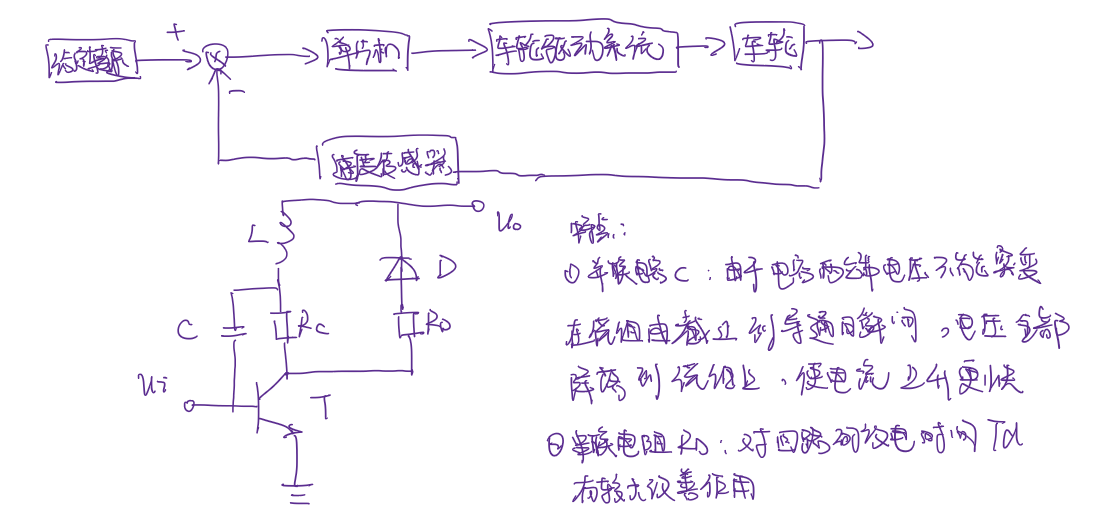 给定转速 + 单片机 车轮驱动系统 车轮
-
速度传感器
L
D
U₀
C
Rc
R_D
Ui
T
特点:
① 并联电容C:由于电容两端电压不能突变
在绕组由截止到导通瞬间,电压全部
降落到绕组上,使电流上升更快
② 串联电阻R_D:对回路的放电时间Td
有较大改善作用